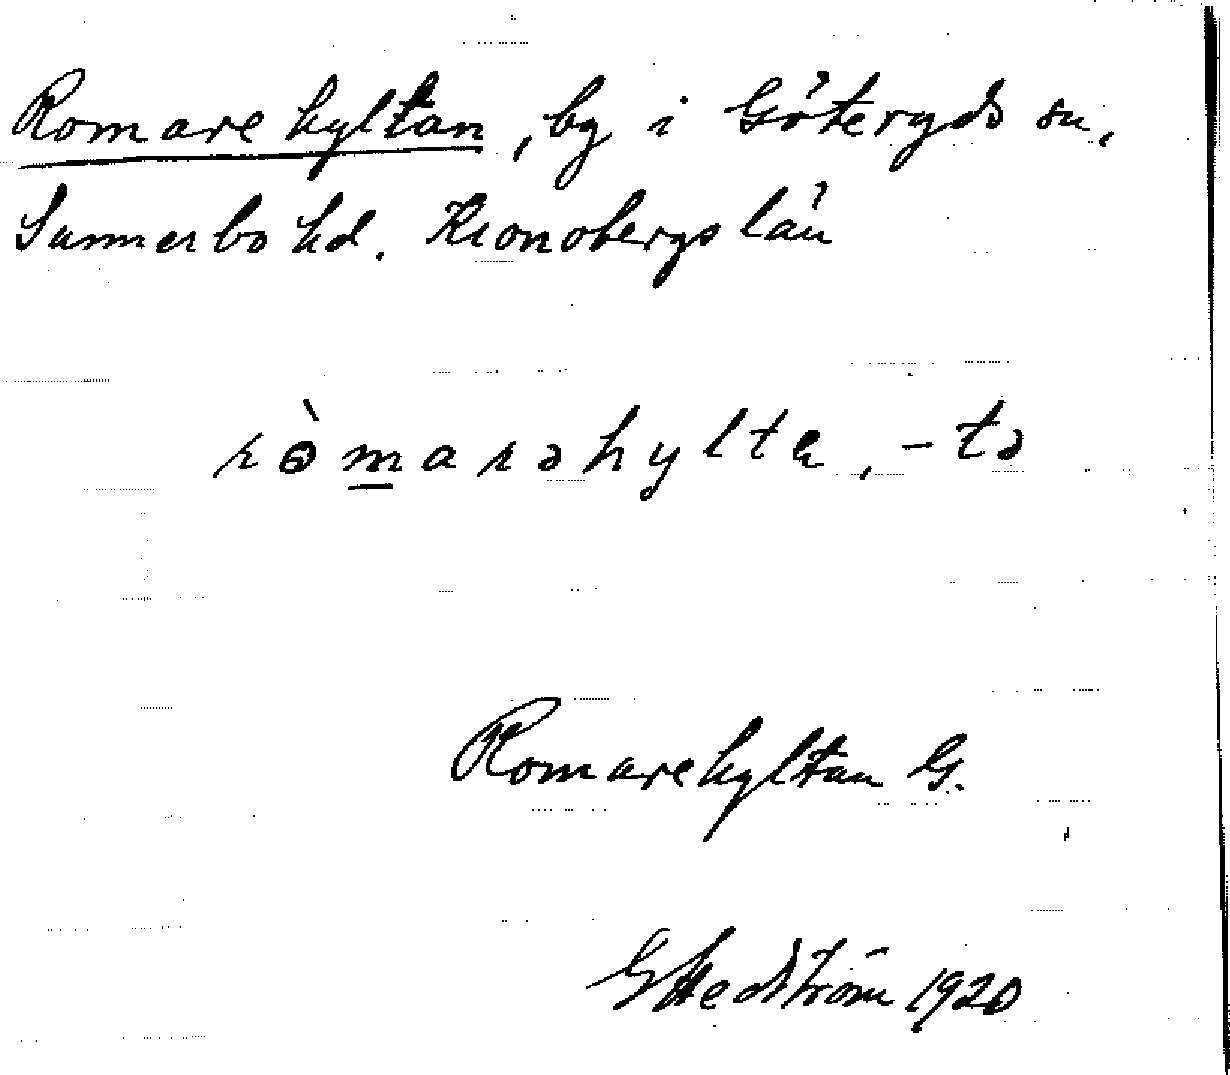 Romarehyltan, by i Göteryds sn,
Sunnerbo hd. Kronobergs län
rò̵marəhylta, -tə
Romarehyltan G.
G Hedström 1920